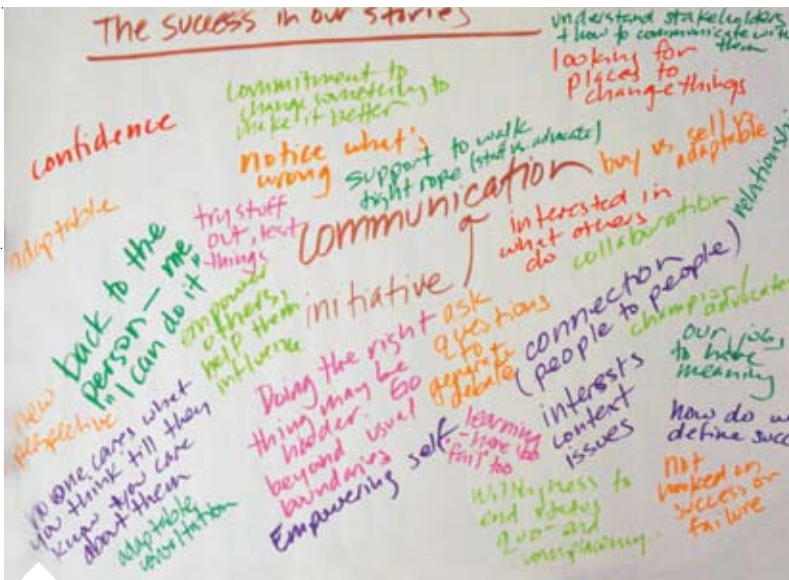 The success in our stories
understand stakeholders
+ how to communicate with
them
looking for
places to
change things
commitment to
change something to
make it better
confidence
notice what's
wrong
support to walk
tight rope (staff vs. advocate)
buy vs. sell vs.
adaptable
adaptable
try stuff
out, test
things
communication
interested in
what others
do
collaboration
relationshi
back to the
person — me
"I can do it"
empower
others,
help them
influence
initiative
ask
questions
to
generate
debate
connection
(people to people)
champion/
advocate
our job,
to have
meaning
new
perspective
Doing the right
thing may be
harder. Go
beyond usual
boundaries
learning
fail too
interests
context
issues
how do w
define succ
no one cares what
you think till they
know you care
about them
adaptable
Empowering self
willingness to
end status
quo and
complacency.
not
hooked on
success or
failure